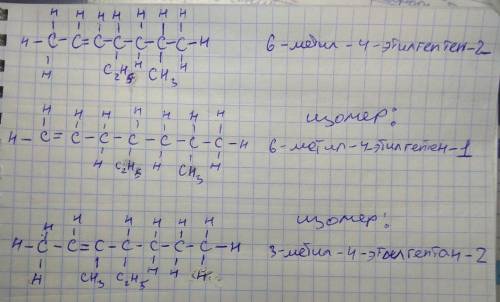 H H H H H H H
H - C - C = C - C - C - C - C - H
H C₂H₅ H CH₃ H
6-метил-4-этилгептен-2
изомер:
H H H H H H H
H - C = C - C - C - C - C - C - H
H C₂H₅ H CH₃ H
6-метил-4-этилгептен-1
изомер:
H H H H H H
H - C - C = C - C - C - C - C - H
H CH₃ C₂H₅ H H H
3-метил-4-этилгептан-2